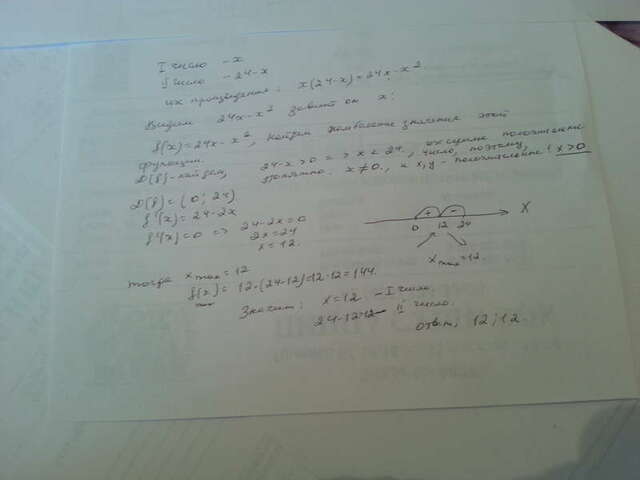 I число - x
II число - 24-x
их произведение: x(24-x)=24x-x²
Видим 24x-x² зависит от x:
f(x)=24x-x², найдем наибольшее значение этой
функции.
D(f)-найдем, 24-x>0 => x<24, их сумма положительное
число, поэтому,
понятно. x≠0., а x,y - положительные! x>0
D(f)=(0; 24)
f'(x)=24-2x
f'(x)=0 => 24-2x=0
2x=24
x=12.
+ - X
0 12 24
x max=12.
тогда x max=12
f(x)= 12·(24-12)=12·12=144.
Значит: x=12 - I число.
24-12=12 II число.
Ответ; 12; 12.